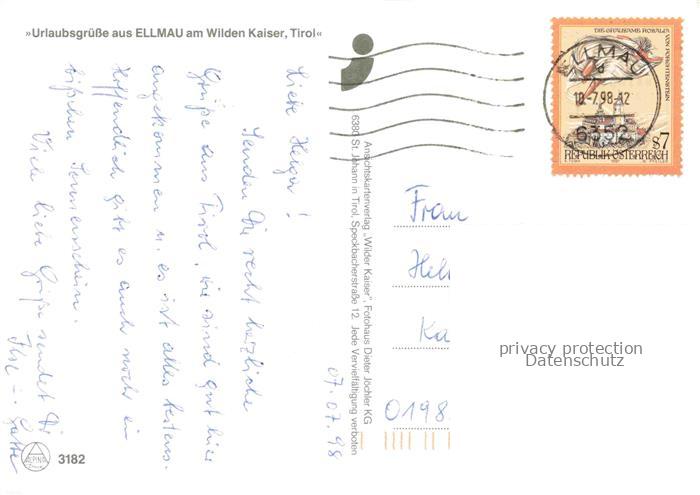 »Urlaubsgrüße aus ELLMAU am Wilden Kaiser, Tirol«
07.07.98
Liebe Helga!
Senden Dir recht herzliche
Grüße aus Tirol, sind gut hier
angekommen u. es ist alles bestens.
Hoffendlich gibt es auch noch ein
bißchen Sonnenschein.
Viele liebe Grüße sendet Di
Ilse
Ansichtskartenverlag „Wilder Kaiser", Fotohaus Dieter Jöchler KG
6380 St. Johann in Tirol, Speckbacherstraße 12. Jede Vervielfältigung verboten
DIE GRAUSAME ROSALIA
VON FORCHTENSTEIN
ELLMAU
10.-7.98-12
6352
S7
REPUBLIK ÖSTERREICH
Frau
Hel
Ka
0198
privacy protection
Datenschutz
ALPINA
3182